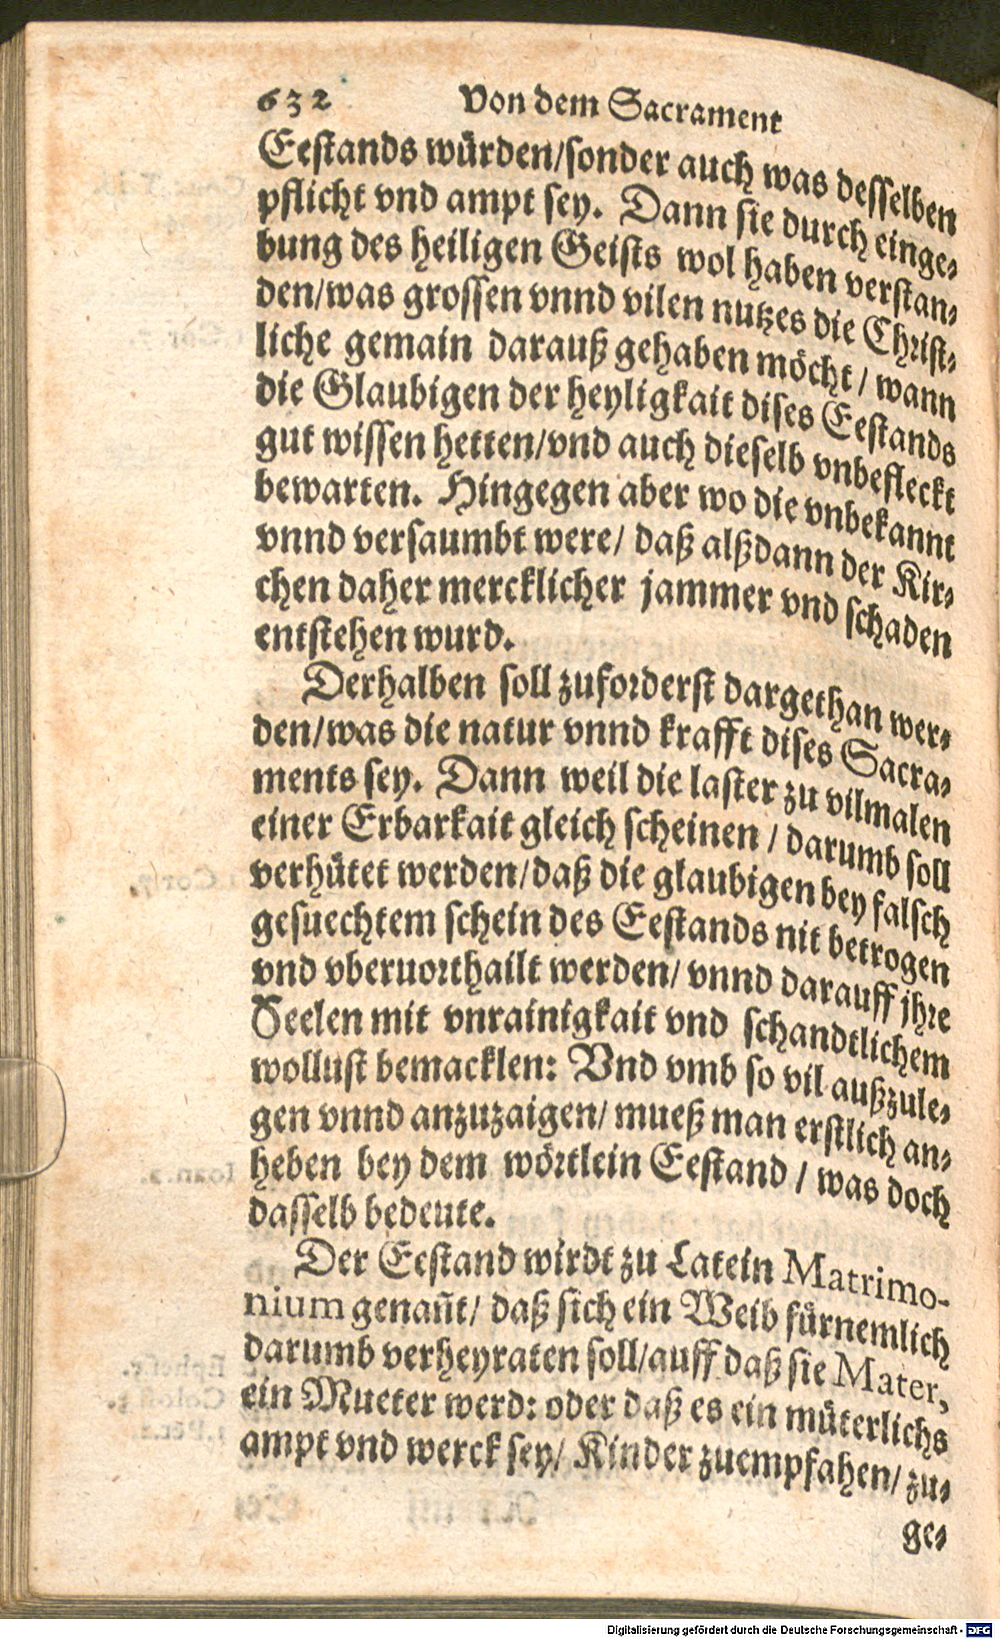 632 Von dem Sacrament
Eestands würden/sonder auch was desselben
pflicht vnd ampt sey. Dann sie durch einge-
bung des heiligen Geists wol haben verstan-
den/was grossen vnnd vilen nutzes die Christ-
liche gemain darauß gehaben möcht/ wann
die Glaubigen der heyligkait dises Eestands
gut wissen hetten/vnd auch dieselb vnbefleckt
bewarten. Hingegen aber wo die vnbekannt
vnnd versaumbt were/ daß alßdann der Kir-
chen daher mercklicher jammer vnd schaden
entstehen wurd.
Derhalben soll zuforderst dargethan wer-
den/was die natur vnnd krafft dises Sacra-
ments sey. Dann weil die laster zu vilmalen
einer Erbarkait gleich scheinen / darumb soll
verhütet werden/daß die glaubigen bey falsch
gesuechtem schein des Eestands nit betrogen
vnd vberuorthailt werden/ vnnd darauff jhre
Seelen mit vnrainigkait vnd schandtlichem
wollust bemacklen: Vnd vmb so vil außzule-
gen vnnd anzuzaigen/ mueß man erstlich an-
heben bey dem wörtlein Eestand / was doch
dasselb bedeute.
Der Eestand wirdt zu Latein Matrimo-
nium genañt/ daß sich ein Weib fürnemlich
darumb verheyraten soll/auff daß sie Mater,
ein Mueter werd: oder daß es ein müterlichs
ampt vnd werck sey/ Kinder zuempfahen/ zu-
ge-
Digitalisierung gefördert durch die Deutsche Forschungsgemeinschaft - DFG